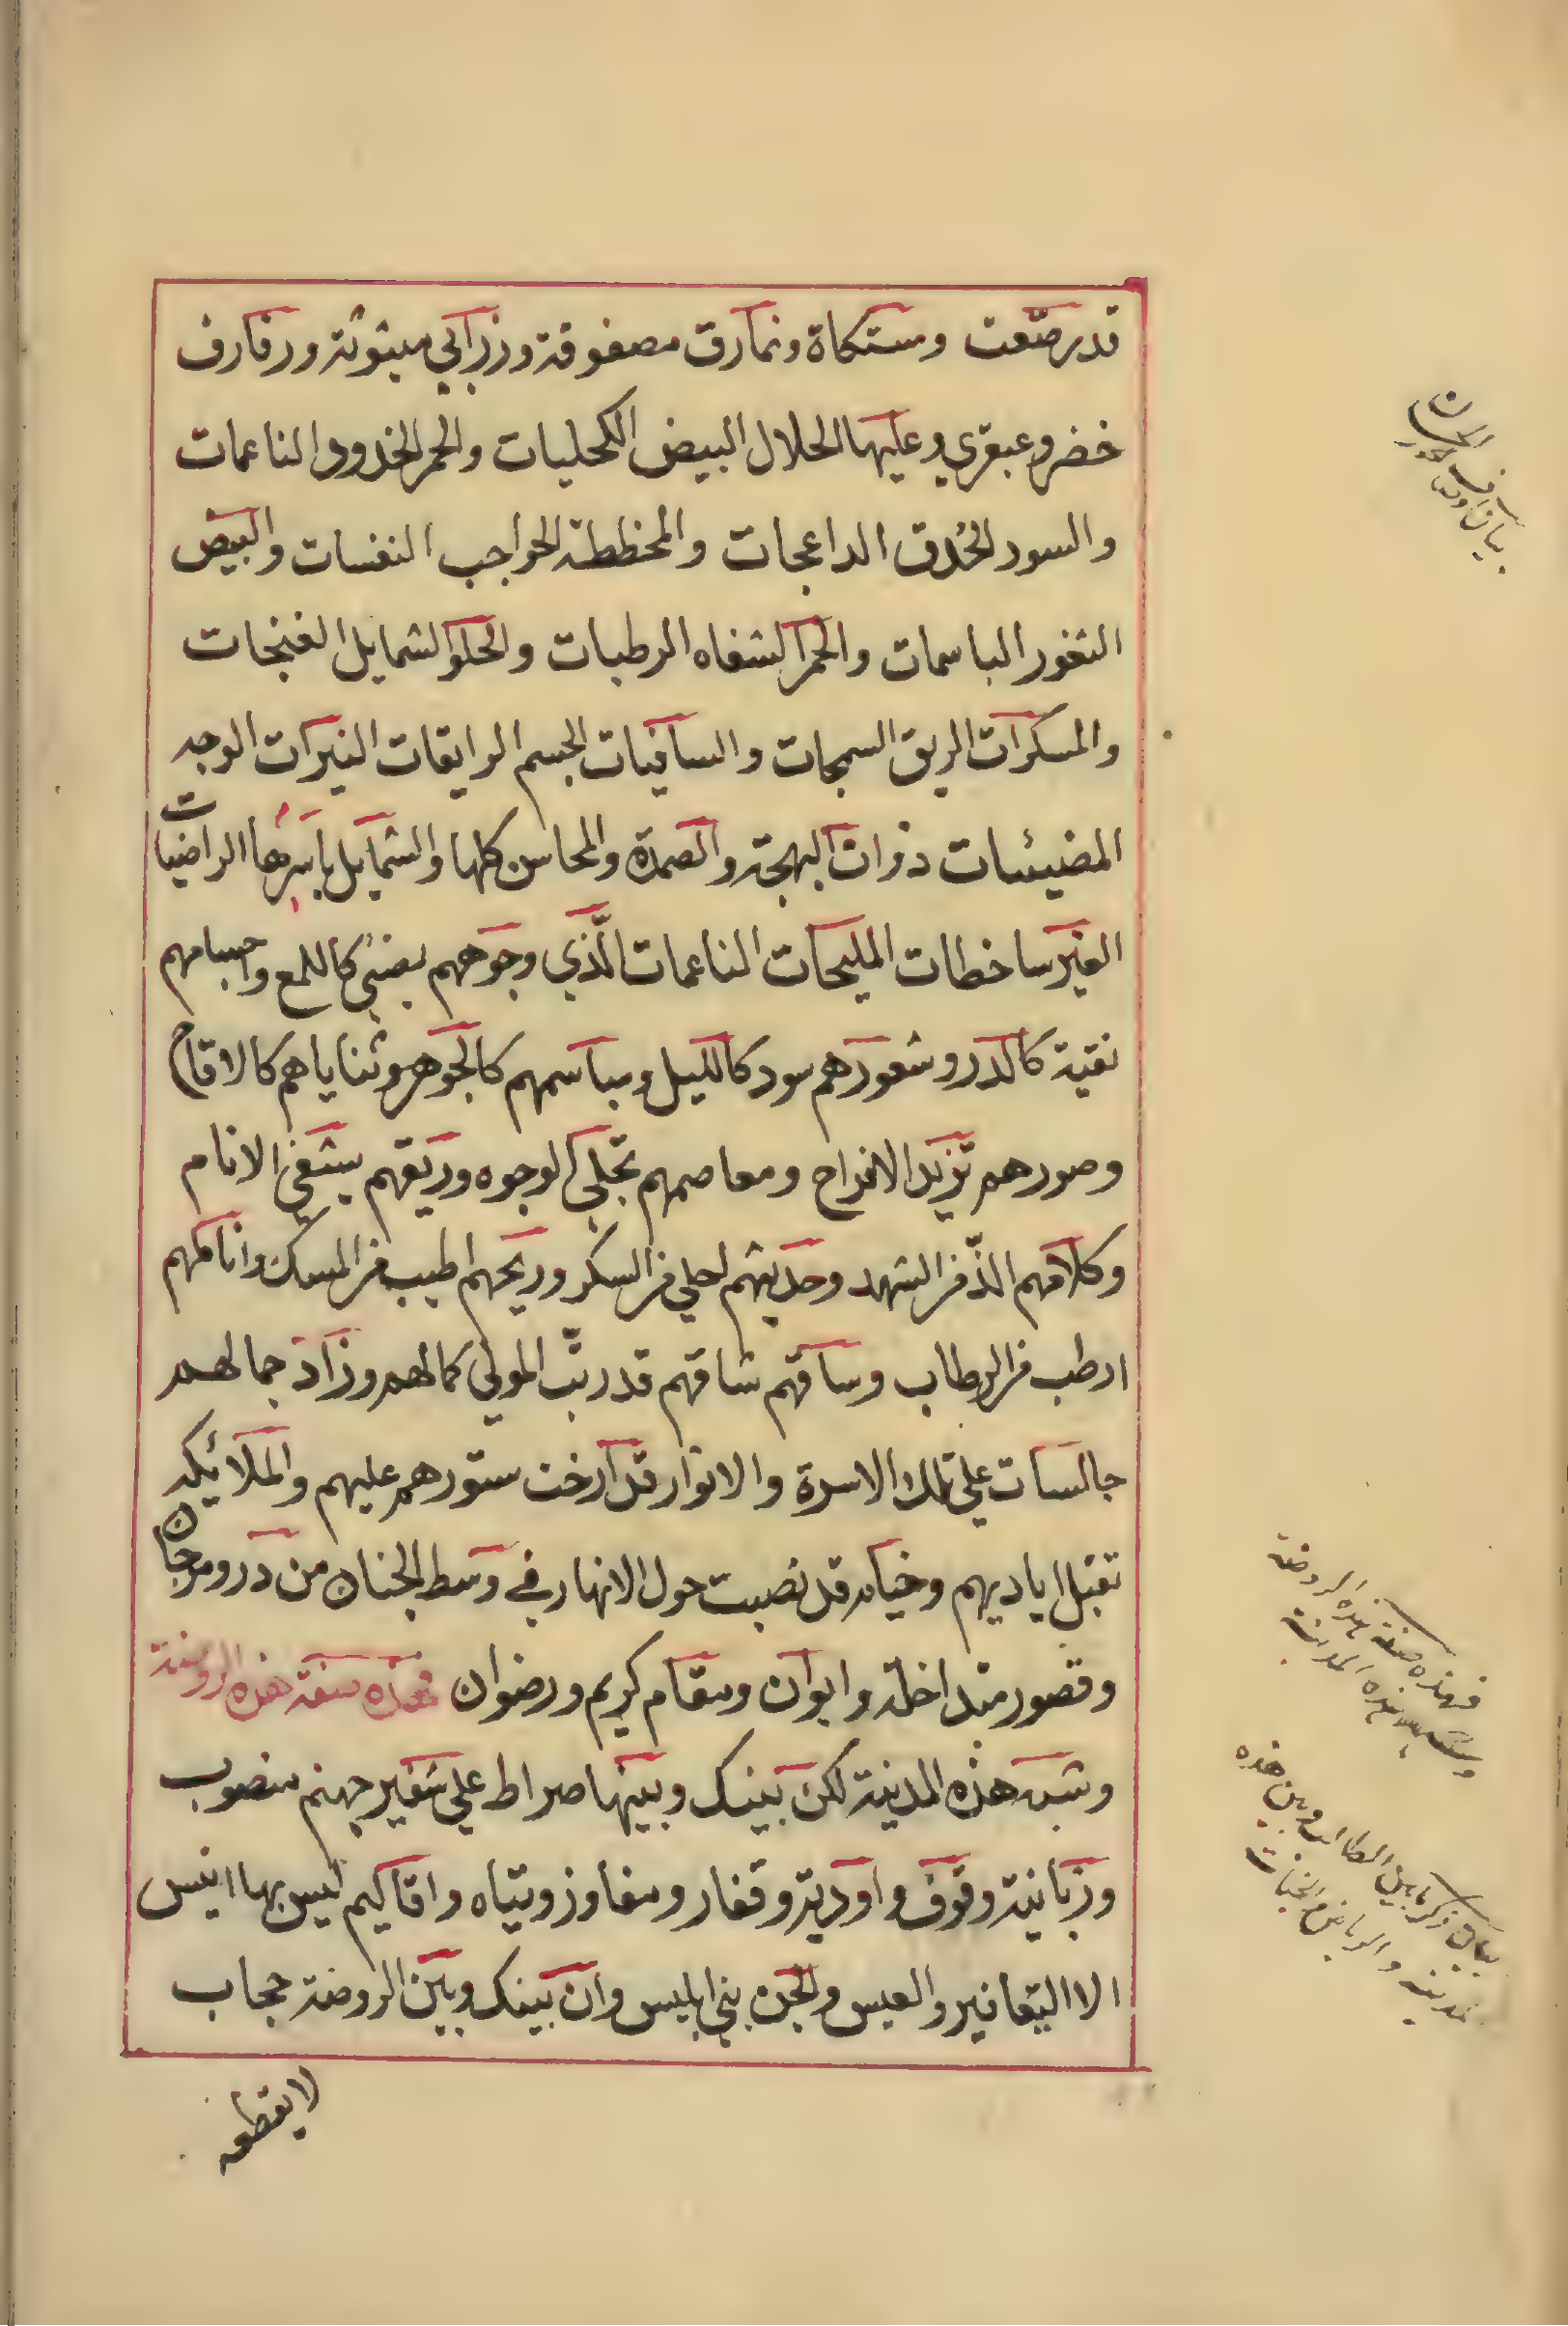 قد رصّعت ومتكاة ونمارق مصفوفة وزرابي مبثوثة ورفارف
خضر وعبقري وعليها الحلال البيض الكحليات والحمر الخدود الناعمات
والسود الحُدق الداعجات والمخططة الحواجب النفسات والبيض
الثغور الباسمات والحمر الشفاه الرطبات والحلو الشمايل الغنجات
والمسكرات الريق السمجات والسافيات الجسم الرايقات النيرات الوجه
المضيئات ذوات البهجة والصمدة والمحاسن كلها والشمايل باسرها الراضيات
الغير ساخطات المليحات الناعمات الّذي وجوههم يضئ كاللمع واجسامهم
نقية كالدرر وشعورهم سود كالليل ومباسمهم كالجوهر وثناياهم كالاقاح
وصورهم تزيد الافراح ومعاصمهم تجلي الوجوه وريقهم يشفي الانام
وكلامهم الذّ من الشهد وحديثهم احلي من السكر وريحهم اطيب من المسك واناملهم
ارطب من الرطاب وساقهم شاقهم قد ربّ المولي كمالهم وزاد جمالهم
جالسات علي تلك الاسرة والانوار قد ارخت ستورهم عليهم والملائكة
تقبل اياديهم وخيام قد نصبت حول الانهار في وسط الجنان من در ومرجان
وقصور متداخلة وايوان ومقام كريم ورضوان فهذه صفة هذه الروضة
وشبه هذه المدينة لكن بينك وبينها صراط علي شفير جهنم منصوب
وزبانية وقوف واودية وقفار ومفاوز وتياه واقاليم ليس بها انيس
الا اليعافير والعيس والجن بني ابليس وان بينك وبين الروضة حجاب
لا يقطعه
بيان اوصاف الحور
فهذه صفة هذه الروضة
هذه المدينة
بيان ذكر ما بين الطالب وبين هذه
المدينة والرياض والجنات